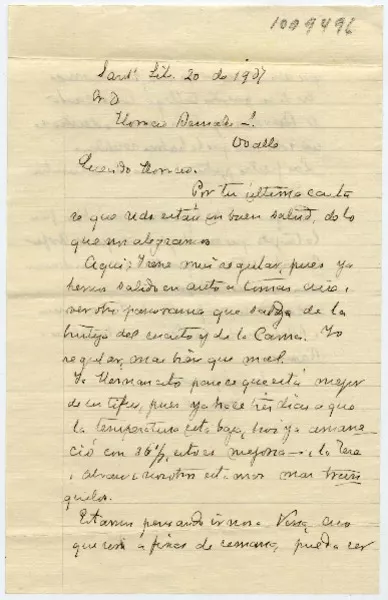 1009496
20 de 1937
Sr. D.
Horacio L.
Ovalle
Querido Horacio:
Por tu última carta
veo que uds están en buen salud, de lo
que nos alegramos
Aquí, Irene muy regular, pues ya
hemos salido en auto a tomar aire i
ver otro panorama que salga de la
del cuarto y de la Cama. Yo
regular, mas bien que mal.
Ya Hernancito parece que está mejor
de su tifus, pues ya hace tres días a que
la temperatura esta baja, hoi ya amane-
ció con 36½, esto es mejoria — i la Tere
i nosotros estamos mas tran
quilos.
Estamos pensando irnos a creo
que será a fines de semana, puede ser